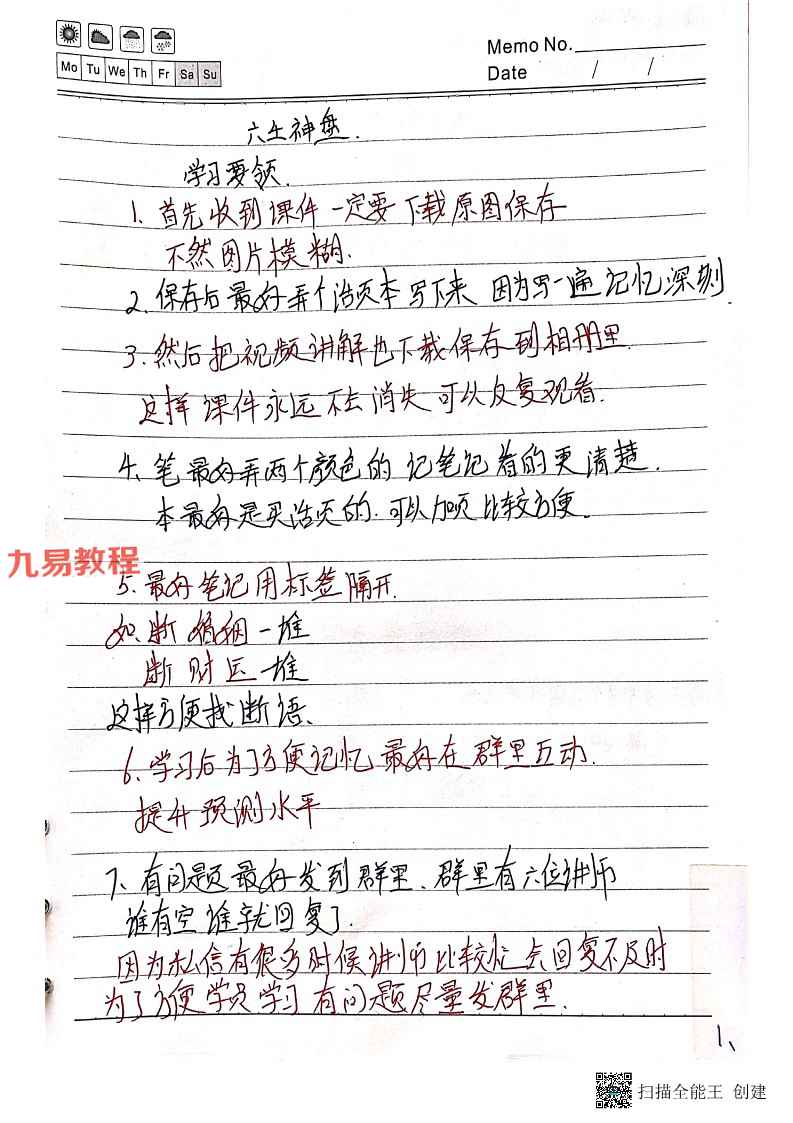 Memo No.
Mo Tu We Th Fr Sa Su
Date / /
六壬神盘.
学习要领.
1. 首先收到课件一定要下载原图保存
不然图片模糊.
2. 保存后最好弄个活页本写下来 因为写一遍记忆深刻.
3. 然后把视频讲解也下载保存到相册里.
这样课件永远不会消失 可以反复观看.
4、笔最好弄两个颜色的 记笔记看的更清楚.
本最好是买活页的.可以加页比较方便.
九易教程
5. 最好笔记用标签隔开.
如.断婚姻一堆
断财运一堆
这样方便找断语、
6. 学习后为了方便记忆最好在群里互动.
提升预测水平
7、有问题最好发到群里、群里有六位讲师
谁有空谁就回复了.
因为私信有很多时候讲师比较忙会回复不及时
为了方便学员学习有问题尽量发群里.
1、
扫描全能王 创建